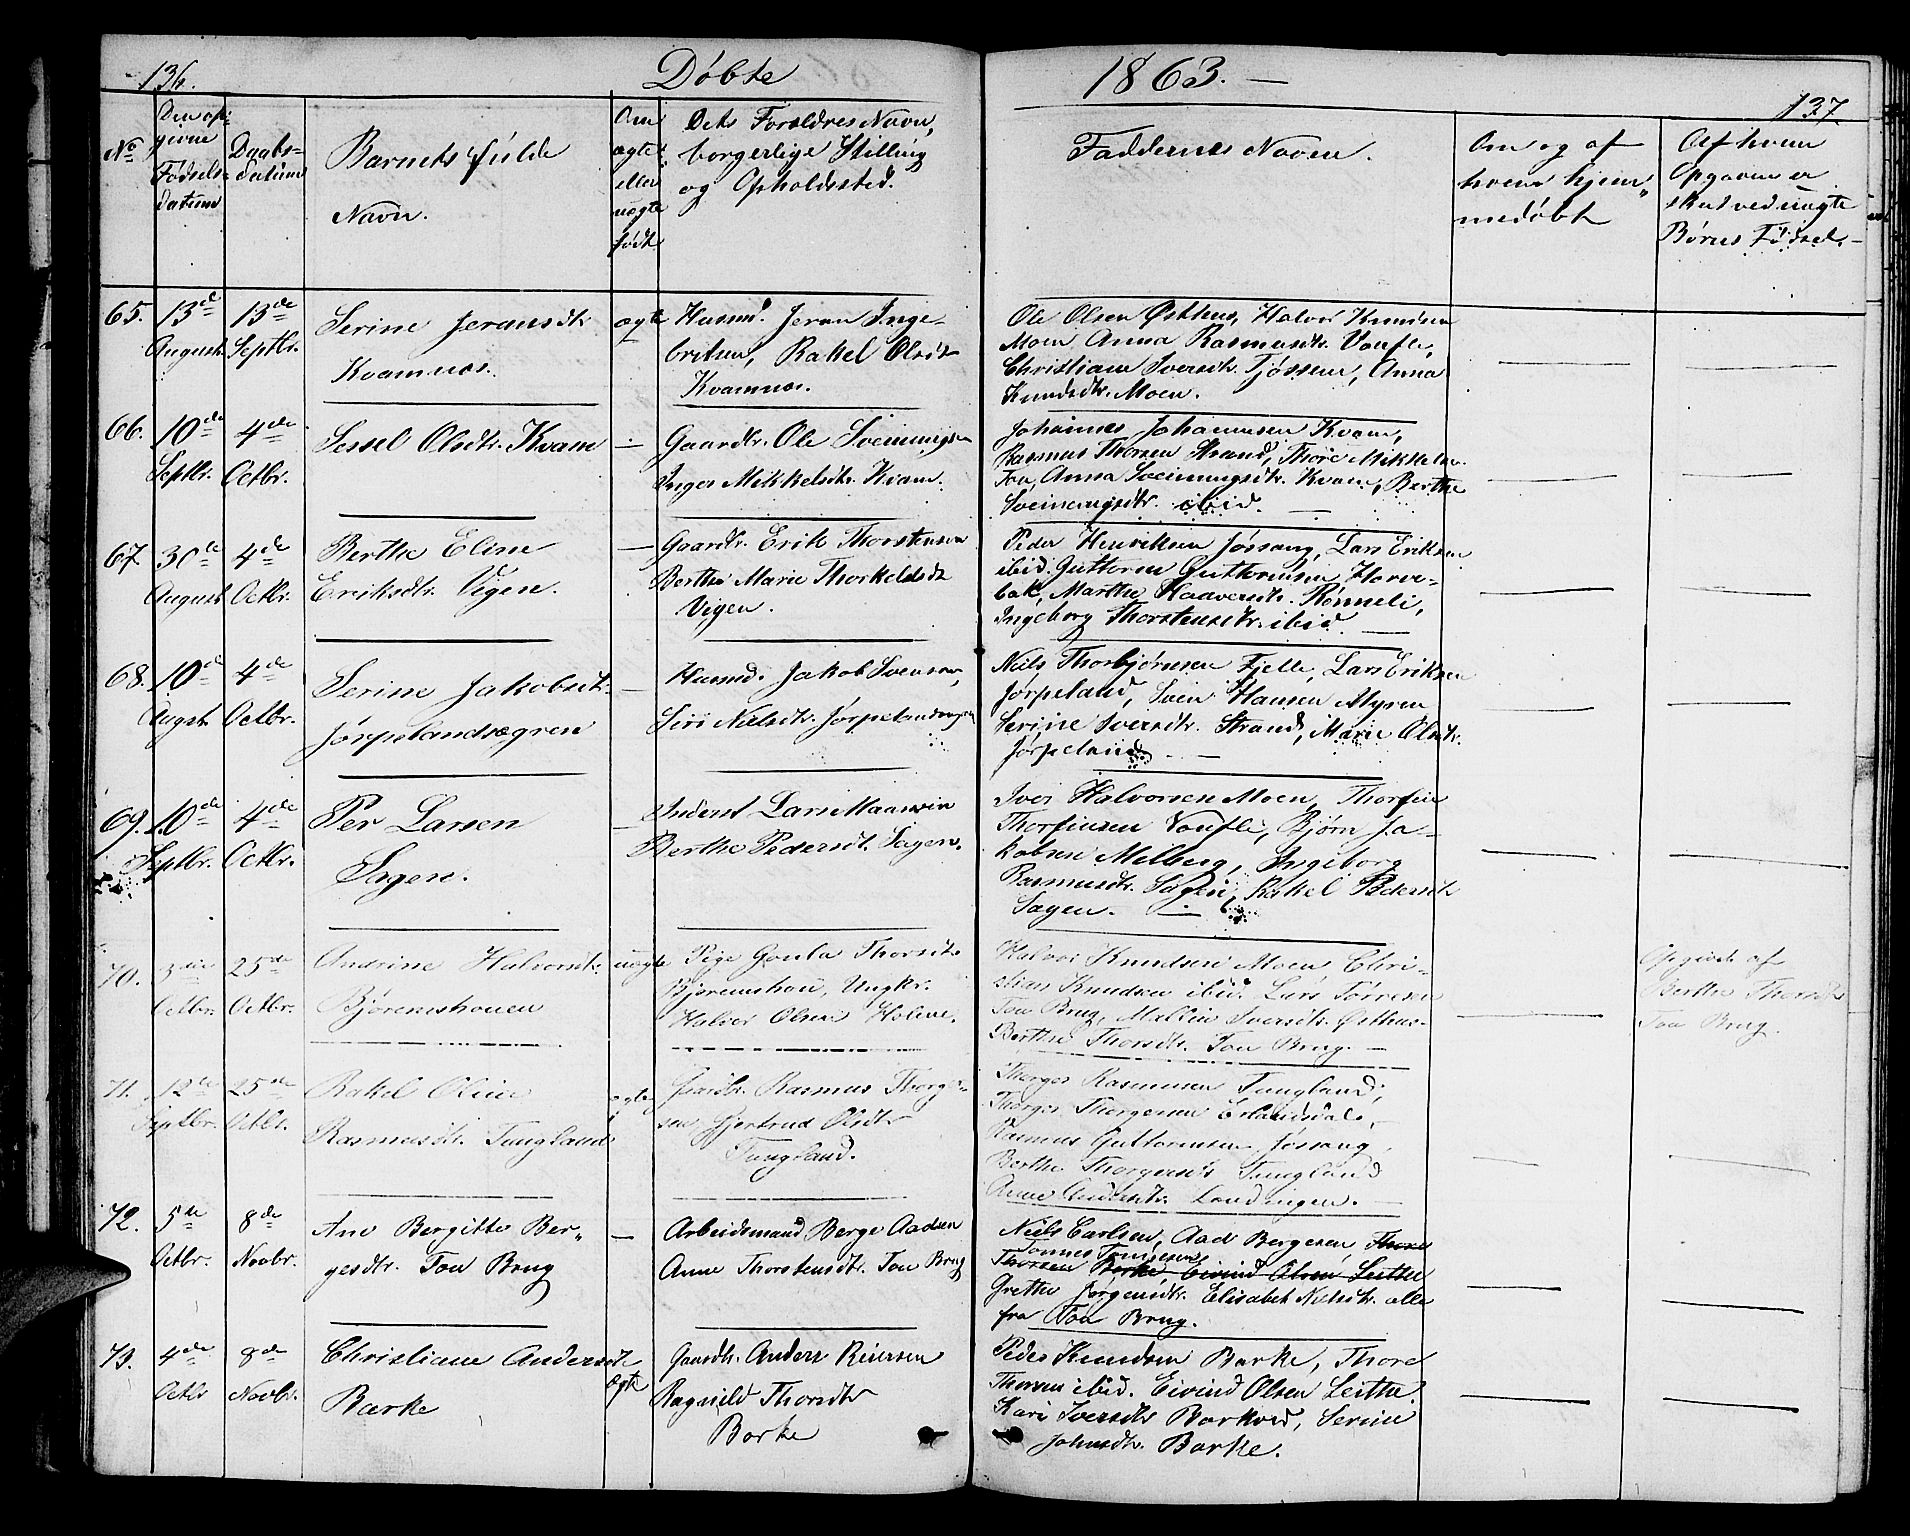 136.
Døbte
1863. —
137
No
Den op-
givne
Fødsels-
datum
Daabs-
datum
Barnets fulde
Navn.
Om
ægte
eller
uægte
født.
Dets Forældres Navn,
borgerlige Stilling
og Opholdssted.
Faddernes Navne.
Om og af
hvem hjem-
medøbt
Af hvem
Opgaven er
skeet ved uægte
Børns Fødsel.
65. 13de August 13de Septbr.
Serine Jeransdtr
Kvamnæs.
ægte
Husmd. Jeran Inge-
britsen, Rakel Olsdtr
Kvamnæs.
Ole Olsen Østhus, Halvor Knudsen
Moen Anna Rasmusdtr. Voufle,
Christiane Iversdtr. Tjøssem, Anna
Knudsdtr. Moen.
66. 10de Septbr. 4de Octbr.
Sessel Olsdtr. Kvam
—
Gaardbr. Ole Sveinungsen
Inger Mikkelsdtr. Kvam.
Johannes Johannesen Kvam,
Rasmus Thorsen Strand, Thore Mikkelsen
Tou, Anna Sveinungsdtr. Kvam, Berthe
Sveinungsdtr. ibid. —
67. 30te August 4de Octbr.
Berthe Eline
Eriksdtr. Vigen.
—
Gaardbr. Erik Thorstensen
Berthe Marie Thorkelsdtr
Vigen.
Peder Henriksen Jøssang, Lars Eriksen
ibid. Guttorm Guttormsen Horve-
bak, Marthe Haaversdtr. Rønneli,
Ingeborg Thorstensdtr. ibid. —
68. 10de Augst. 4de Octbr.
Serine Jakobsdtr.
Jørpelandsøgren
—
Husmd. Jakob Svensen,
Siri Nielsdtr. Jørpelandsøgren
Niels Thorbjørnsen Fjelle, Lars Eriksen
Jørpeland, Svein Hansen Myren
Serine Iversdtr. Strand, Marie Olsdtr.
Jørpeland —
69. 10de Septbr. 4de Octbr.
Per Larsen
Sagen.
—
Inderst Lars Maanvin
Berthe Pedersdtr. Sagen.
Iver Halvorsen Moen, Thorfin
Thorfinsen Voufle, Bjørn Ja-
kobsen Melberg, Ingeborg
Rasmusdtr. Sagen, Rakel Pedersdtr
Sagen. —
70. 3die Octbr. 25de Octbr.
Andrine Halvorsdtr.
Bjøremshouen
uægte
Pige Gonla Thorsdtr
Bjøremshou, Ungkr.
Halvor Olsen Holene.
Halvor Knudsen Moen Chri-
stian Knudsen ibid. Lars Tørresen
Tou Brug, Mallin Iversdtr. Østhus.
Berthe Thorsdtr. Tou Brug. —
Opgivet af
Berthe Thorsdtr
Tou Brug.
71. 12te Septbr. 25de Octbr.
Rakel Oline
Rasmusdtr. Tungland
ægte
Gaardbr. Rasmus Thorger-
sen Gjertrud Olsdtr
Tungland.
Thorger Rasmussen Tungland,
Thorger Thorgersen Erlandsdale,
Rasmus Guttormsen Jøssang,
Berthe Thorgersdtr Tungland
Anne Andersdtr. Landingen. —
72. 5te Octbr. 8de Novbr.
Ane Bergitte Ber-
gesdtr. Tou Brug
—
Arbeidsmand Berge Aadsen
Anne Thorstensdtr. Tou Brug
Niels Carlsen, Aad Bergesen, Thore
Tønnes Tønnesen
Thorsen Barke, Eivind Olsen Leithe
Grethe Jørgensdtr. Elisabet Nielsdtr. alle
fra Tou Brug.
73. 4de Octbr 8de Novbr.
Christiane Andersdtr
Barke
ægte
Gaardbr. Anders Reiersen
Ragnild Thorsdtr
Barke
Peder Knudsen Barke, Thore
Thorsen ibid. Eivind Olsen Leithe.
Kari Iversdtr Barkved, Serine
Johnsdtr. Barke.